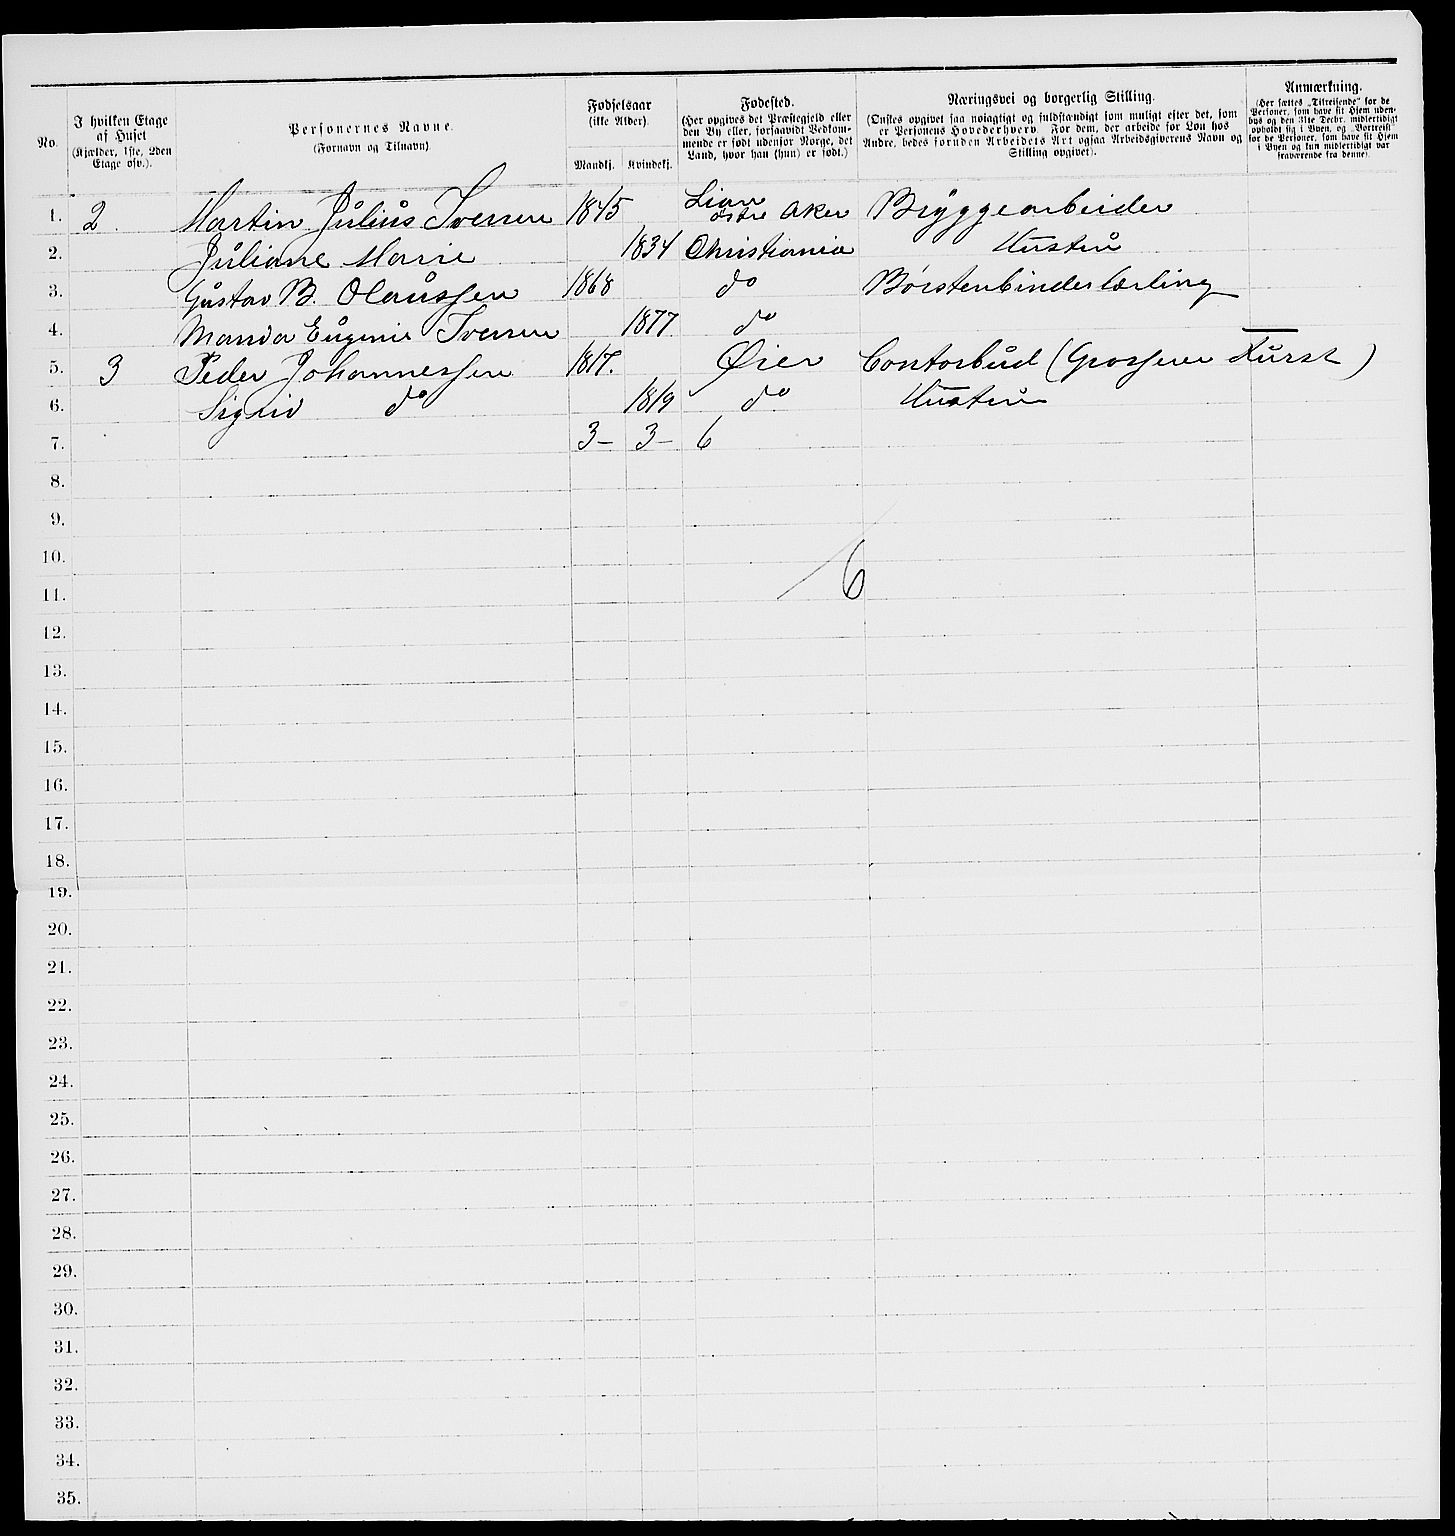 No.
I hvilken Etage af Huset (Kjælder, 1ste, 2den Etage osv.).
Personernes Navne. (Fornavn og Tilnavn).
Fødselsaar (ikke Alder).
Mandkj. Kvindekj.
Fødested. (Her opgives det Præstegjeld eller den By eller, forsaavidt Vedkommende er født udenfor Norge, det Land, hvor han (hun) er født.)
Næringsvei og borgerlig Stilling. (Ønskes opgivet saa nøiagtigt og fuldstændigt som muligt efter det, som er Personens Hovederhverv. For dem, der arbeide for Løn hos Andre, bedes foruden Arbeidets Art ogsaa Arbeidsgiverens Navn og Stilling opgivet).
Anmærkning. (Her sættes „Tilreisende" for de Personer, som have sit Hjem udenbys og den 31te Decbr. midlertidigt opholdt sig i Byen, og „Bortreist" for de Personer, som have sit Hjem i Byen og kun midlertidigt var fraværende fra denne).
1. 2. Martin Julius Iversen 1845 Lian østre Aker Bryggearbeider
2. Juliane Marie 1834 Christiania Hustru
3. Gustav B. Olaussen 1868 do Børstenbinderlærling
4. Manda Eugenie Iversen 1877 do —
5. 3 Peder Johannessen 1817. Øier Contorbud (Grosserer Furst)
6. Sigrid do 1819 do Hustru
7. 3– 3– 6
8.
9.
10.
11. 6
12.
13.
14.
15.
16.
17.
18.
19.
20.
21.
22.
23.
24.
25.
26.
27.
28.
29.
30.
31.
32.
33.
34.
35.